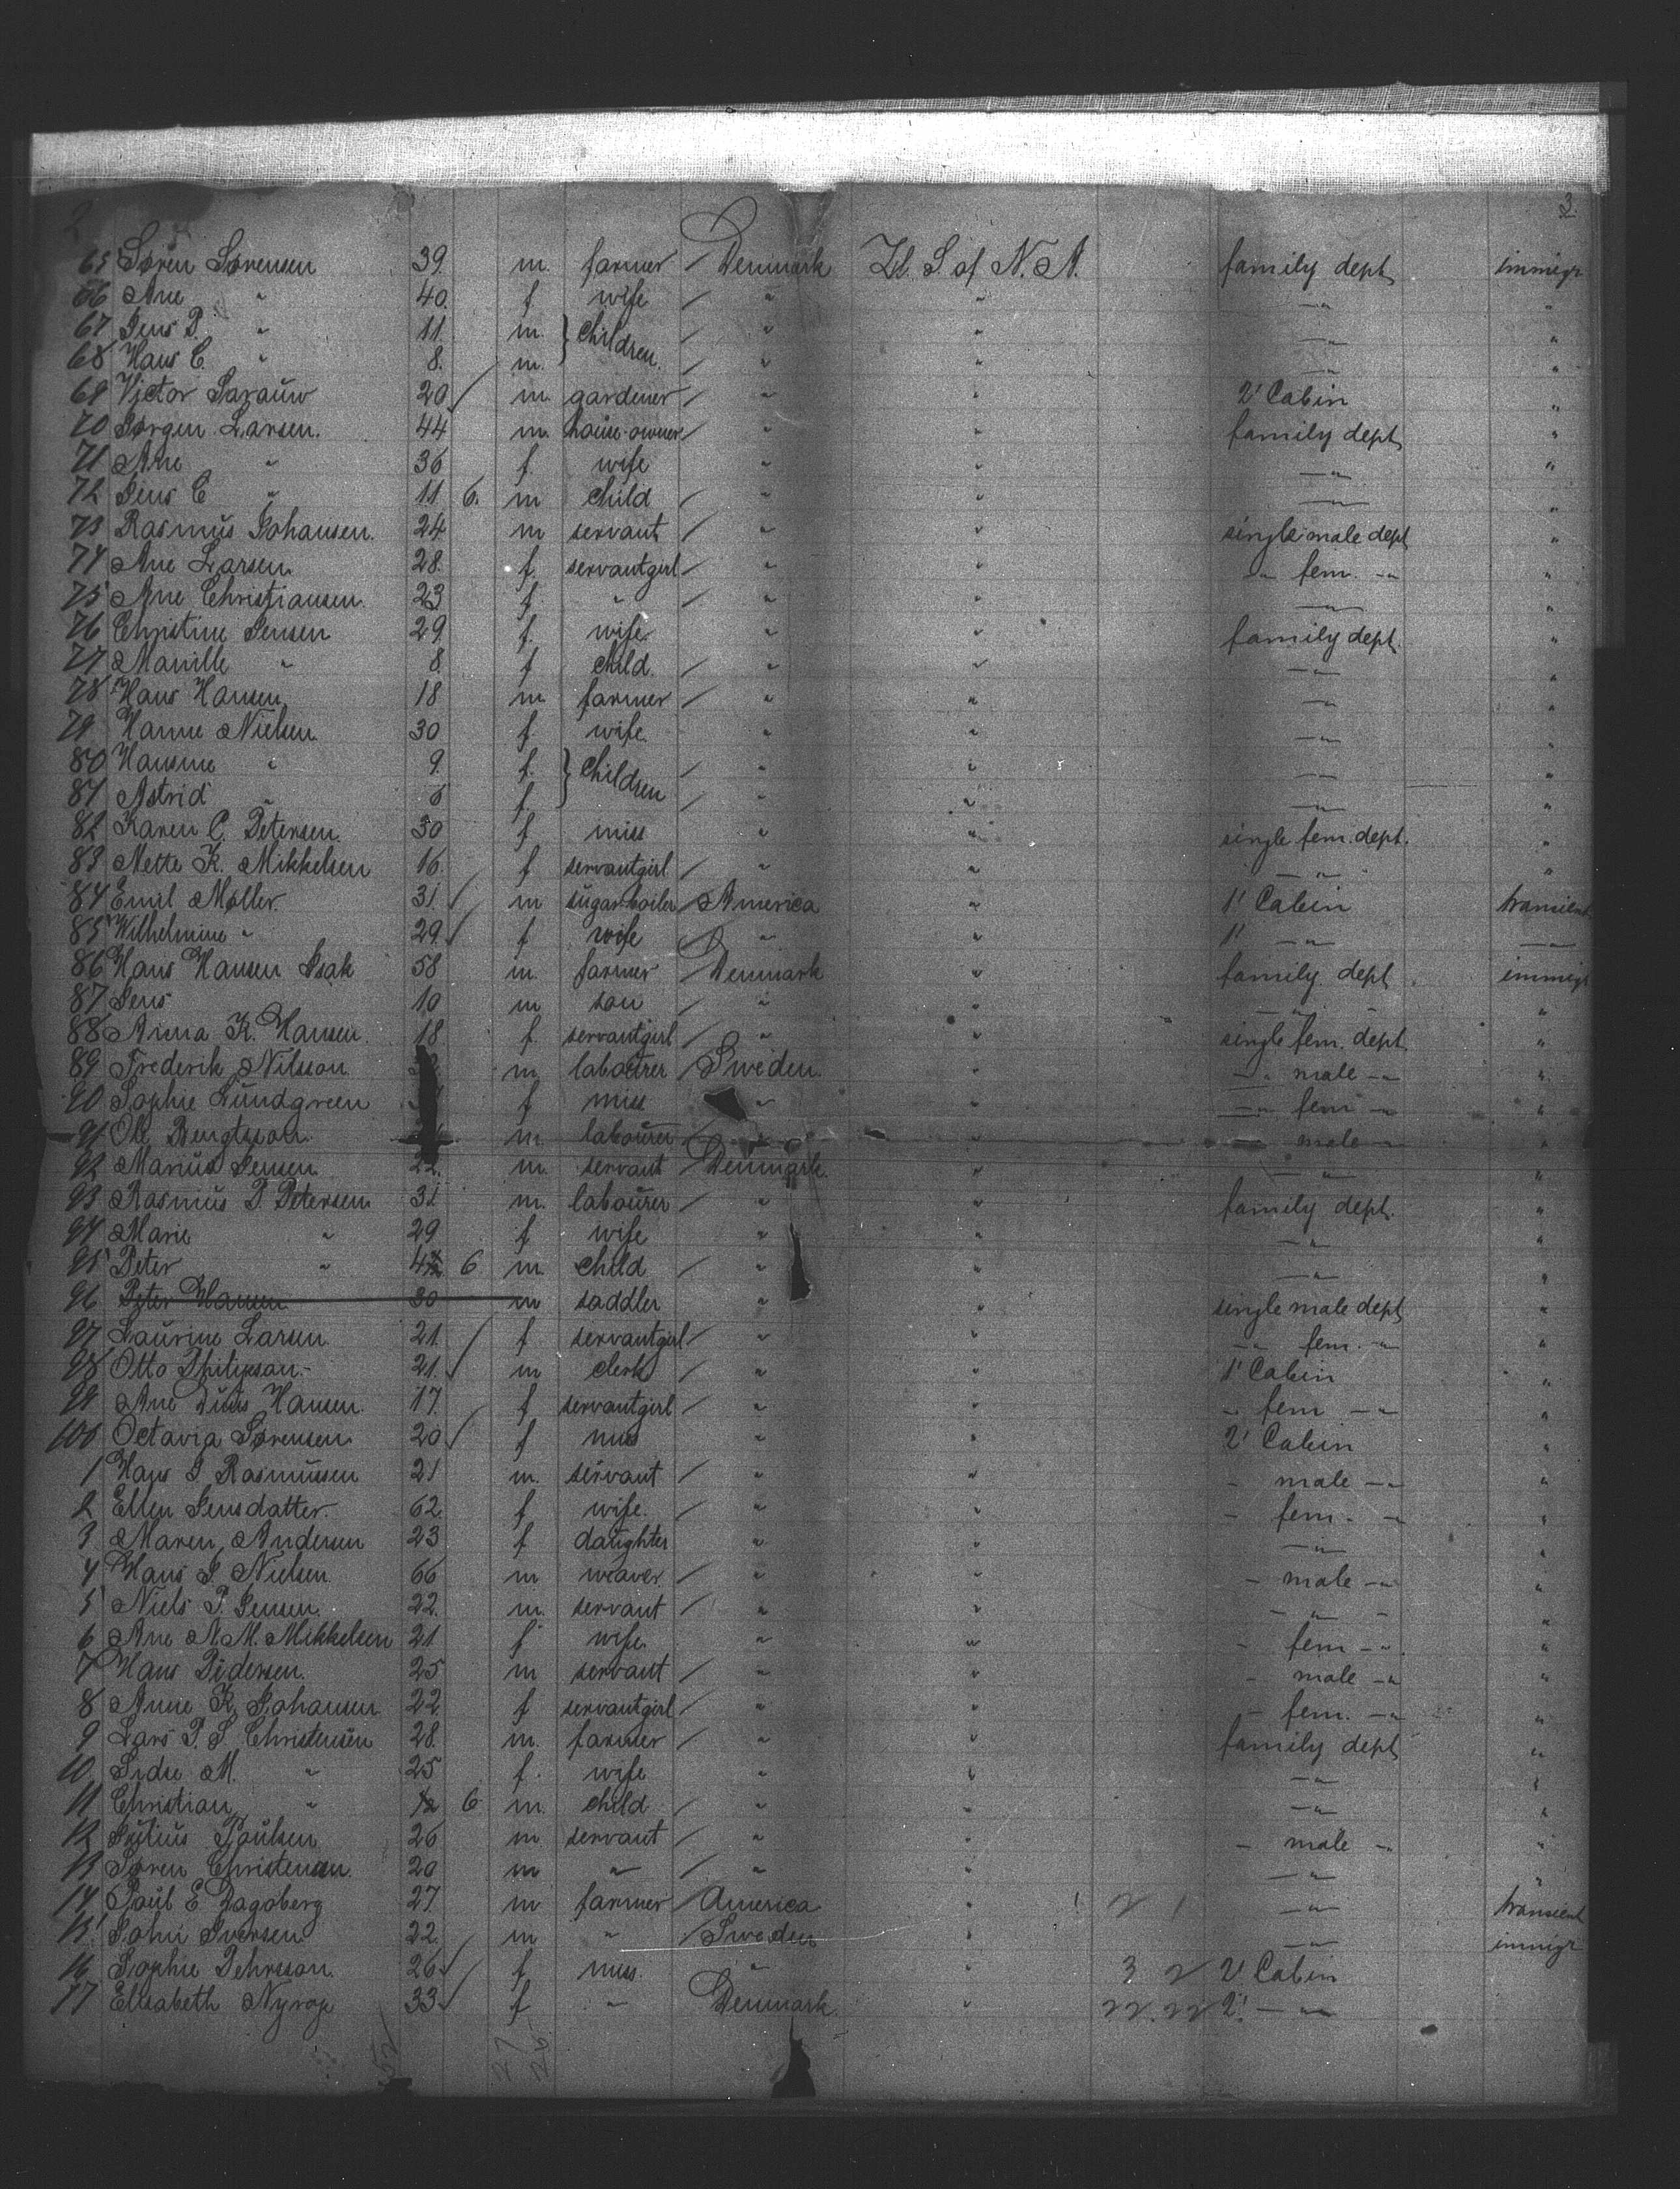 3.
65 Søren Sørensen 39. m. farmer / Denmark Zl. S. of N. A. family dept immigr
66 Ane " 40. f wife / " " —"— "
67 Jens P. " 11. m. } children / " " —"— "
68 Hans C. " 8. m. / " " —"— "
69 Victor Sarauw 20 / m gardener / " " 2' Cabin "
70 Jørgen Larsen. 44 m. house-owner " " family dept "
71 Ane " 36 f. wife " " —"— "
72 Jens C " 11 6. m child / " " —"— "
73 Rasmus Johansen. 24 m servant / " " single male dept "
74 Ane Larsen 28. f. servantgirl / " " —"— fem. —"— "
75 Ane Christiansen. 23 f " / " " —"— "
76 Christine Jensen 29. f. wife. " " family dept. "
77 " 8. f child. / " " —"— "
78 Hans Hansen 18 m. farmer / " " —"— "
79 Hanne Nielsen 30 f. wife. " " —"— "
80 Hansine " 9. f. } children / " " —"— "
81 Astrid " 6 f. / " " —"— "
82 Karen C. Petersen. 30 f miss " " single fem. dept. "
83 Mette K. Mikkelsen 16. f servantgirl / " " —"— "
84 Emil Møller. 31. / m sugarboiler / America " 1' Cabin transient
85 Wilhelmine " 29. / f wife " " 1' —"— —"—
86 Hans Hansen Isak 58 m. farmer Denmark " family dept immigr
87 Jens 10 m son / " " —"— "
88 Anna K. Hansen. 18 f. servantgirl / " " single fem. dept. "
89 Frederik Nilsson m. labourer / Sweden. " —"— male —"— "
90 Sophie Lundgreen f miss " " —"— fem —"— "
91 Ole Bengtsson. m. labourer / " " —"— male —"— "
92 Marius Jensen 22. m. servant / Denmark. " —"— "
93 Rasmus P. Petersen 31. m. labourer / " " family dept. "
94 Marie " 29 f wife " " —"— "
95 Peter " 6 m. child / " " —"— "
96 Peter Hansen 30 m saddler " " single male dept "
97 Laurine Larsen 21. / f servantgirl / " " —"— fem. —"— "
98 Otto Philipson. 21. / m clerk / " " 1' Cabin "
99 Ane Hansen. 17. f servantgirl / " " " fem —"— "
100 Octavia Sørensen 20 / f miss " " 2' Cabin "
1 Hans J. Rasmussen 21 m. servant / " " - male —"— "
2 Ellen Jensdatter. 62. f wife. / " " - fem. —"— "
3 Maren Andersen 23 f daughter " " —"— "
4 Hans J. Nielsen. 66 m weaver. / " " - male —"— "
5 Niels P. Jensen. 22. m. servant / " " —"— "
6 Ane A. M. Mikkelsen 21 f wife. " " - fem —"— "
7 Hans Pedersen. 25 m servant / " " - male —"— "
8 Anne K. Johansen 22. f servantgirl / " " - fem. —"— "
9 Lars P. S. Christensen 28. m. farmer / " " family dept "
10 Sidse M. " 25 f. wife " " —"— "
11 Christian " 6 m. child / " " —"— "
12 Julius Poulsen 26 m servant / " " - male —"— "
13 Søren Christensen. 20 m " / " " —"— "
14 Poul E. Dagoberg 27 m farmer / America " —"— transient
15 John Iversen 22. m " / Sweden " —"— immigr
16 Sophie Pehrsson. 26 / f miss. " " 3 2 2' Cabin
17 Elisabeth Nyrop 33 / f " Denmark " 22. 22 2' —"—
52
27
26